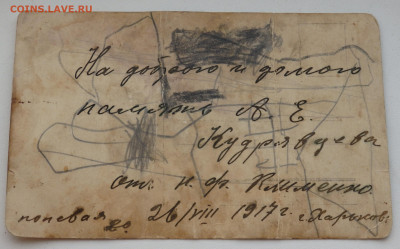 COINS.LAVE.RU
На доброю и долгою
память А. Е.
Кудрявцева
от. Н. Ф. Клименко
26/VIII 1917 г. г. Харьков.